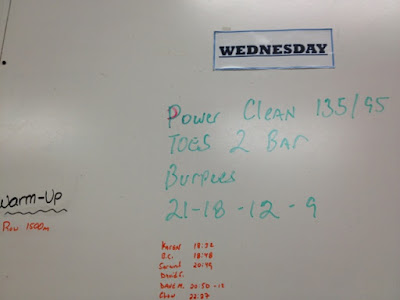 WEDNESDAY
Power Clean 135/95
Toes 2 Bar
Burpees
21-18-12-9
Warm-Up
Row 1500m
Karen 18:32
D.C. 18:48
20:49
David F.
Dave M. 20:50 -12
22:27